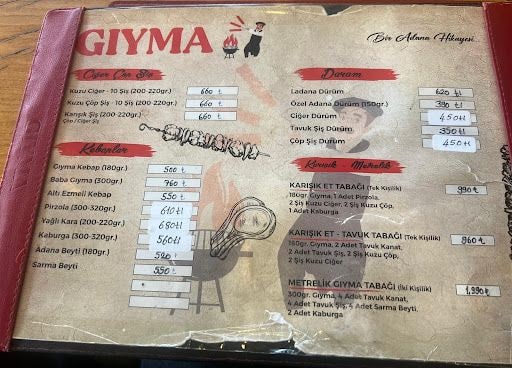 GIYMA
Bir Adana Hikayesi
Ciğer Çöp Şiş
Kuzu Ciğer - 10 Şiş (200-220gr.) 660 ₺
Kuzu Çöp Şiş - 10 Şiş (200-220gr.) 660 ₺
Karışık Şiş (200-220gr.) 660 ₺
Çöp / Ciğer Şiş
Kebaplar
Gıyma Kebap (180gr.) 500 ₺
Baba Gıyma (300gr.) 760 ₺
Altı Ezmeli Kebap 550
Pirzola (300-320gr.) 610tl
Yağlı Kara (200-220gr.) 680tl
Kaburga (300-320gr.) 560tl
Adana Beyti (180gr.) 520 ₺
Sarma Beyti 550
Dürüm
Ladana Dürüm 620 tl
Özel Adana Dürüm (150gr.) 390 tl
Ciğer Dürüm 450tl
Tavuk Şiş Dürüm 350tl
Çöp Şiş Dürüm 450tl
Karışık - Metrelik
KARIŞIK ET TABAĞI (Tek Kişilik) 990 ₺
180gr. Gıyma, 1 Pirzola,
2 Şiş Kuzu Ciğer, 2 Şiş Kuzu Çöp,
1 Adet Kaburga
KARIŞIK ET - TAVUK TABAĞI (Tek Kişilik) 860 ₺
180gr. Gıyma, 2 Adet Tavuk Kanat,
2 Adet Tavuk Şiş, 2 Şiş Kuzu Çöp,
2 Şiş Kuzu Ciğer
METRELİK GIYMA TABAĞI (İki Kişilik) 1,390 ₺
300gr. Gıyma, 4 Adet Tavuk Kanat,
4 Adet Tavuk Şiş, 4 Adet Sarma Beyti,
2 Adet Kaburga